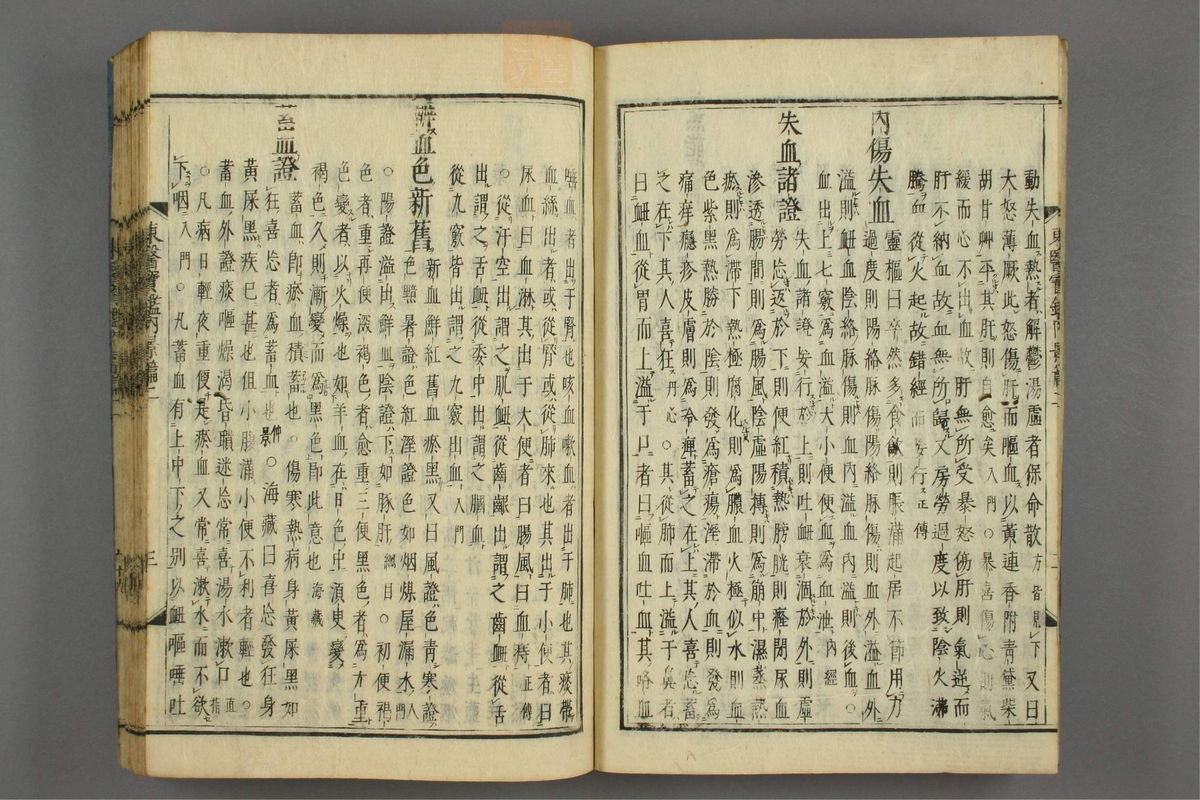 動失血熱者解鬱湯虛者保命散方皆見下又曰
大怒薄厥此怒傷肝而嘔血以黃連香附靑黛柴
胡甘艸平其肝則自愈矣入門○暴喜傷心則氣
緩而心不出血故肝無所受暴怒傷肝則氣逆而
肝不納血故血無所歸又房勞過度以致陰火沸
騰血從火起故錯經而妄行正傳
內傷失血
靈樞曰卒然多食飮則脹滿起居不節用力
過度則陽絡脉傷陽絡脉傷則血外溢血外
溢則衄血陰絡脉傷則血內溢血內溢則後血○
血出上七竅爲血溢大小便便血爲血泄內經
失血諸證
失血諸證妄行於上則吐衄衰涸於外則虛
勞忩返於下則便紅積熱膀胱則癃閉尿血
滲透腸間則爲腸風陰虛陽搏則爲崩中濕蒸熱
瘀則爲滯下熱極腐化則爲膿血火極似水則血
色紫黑熱勝於陰則發爲瘡瘍淫滯於血則發爲
痛痒癮疹皮膚則爲冷痺蓄之在上其人喜忘蓄
之在下其人喜狂丹心○其從肺而上溢于鼻者
曰衄血從胃而上溢于口者曰嘔血吐血其咯血
唾血者出于腎也咳血嗽血者出于肺也其痰帶
血絲出者或從腎或從肺來也其出于小便者曰
尿血曰血淋其出于大便者曰腸風曰血痔正傳
○從汗空出謂之肌衄從齒齦出謂之齒衄從舌
出謂之舌衄從委中出謂之膕血
從九竅皆出謂之九竅出血入門
辨血色新舊
新血鮮紅舊血瘀黑又曰風證色靑寒證
色黯暑證色紅溼證色如烟煤屋漏水入門
○陽證溢出鮮血陰證下如豚肝綱目○初便褐
色者重再便深褐色者愈重三便黑色者爲尤重
色變者以火燥也如羊血在日色中須臾變
褐色久則漸變而爲黑色卽此意也海藏
蓄血證
蓄血卽瘀血積蓄也○傷寒熱病身黃屎黑如
狂喜忘者爲蓄血也仲景○海藏曰喜忘發狂身
黃屎黑疾已甚也但小腹滿小便不利者輕也○
蓄血外證痰嘔燥渴昏聵迷忘常喜湯水漱口直指
○凡病日輕夜重便是瘀血又常喜漱水而不欲
下咽入門○凡蓄血有上中下之別以衄嘔唾吐
東醫寶鑑內景篇二
東醫寶鑑內景篇二